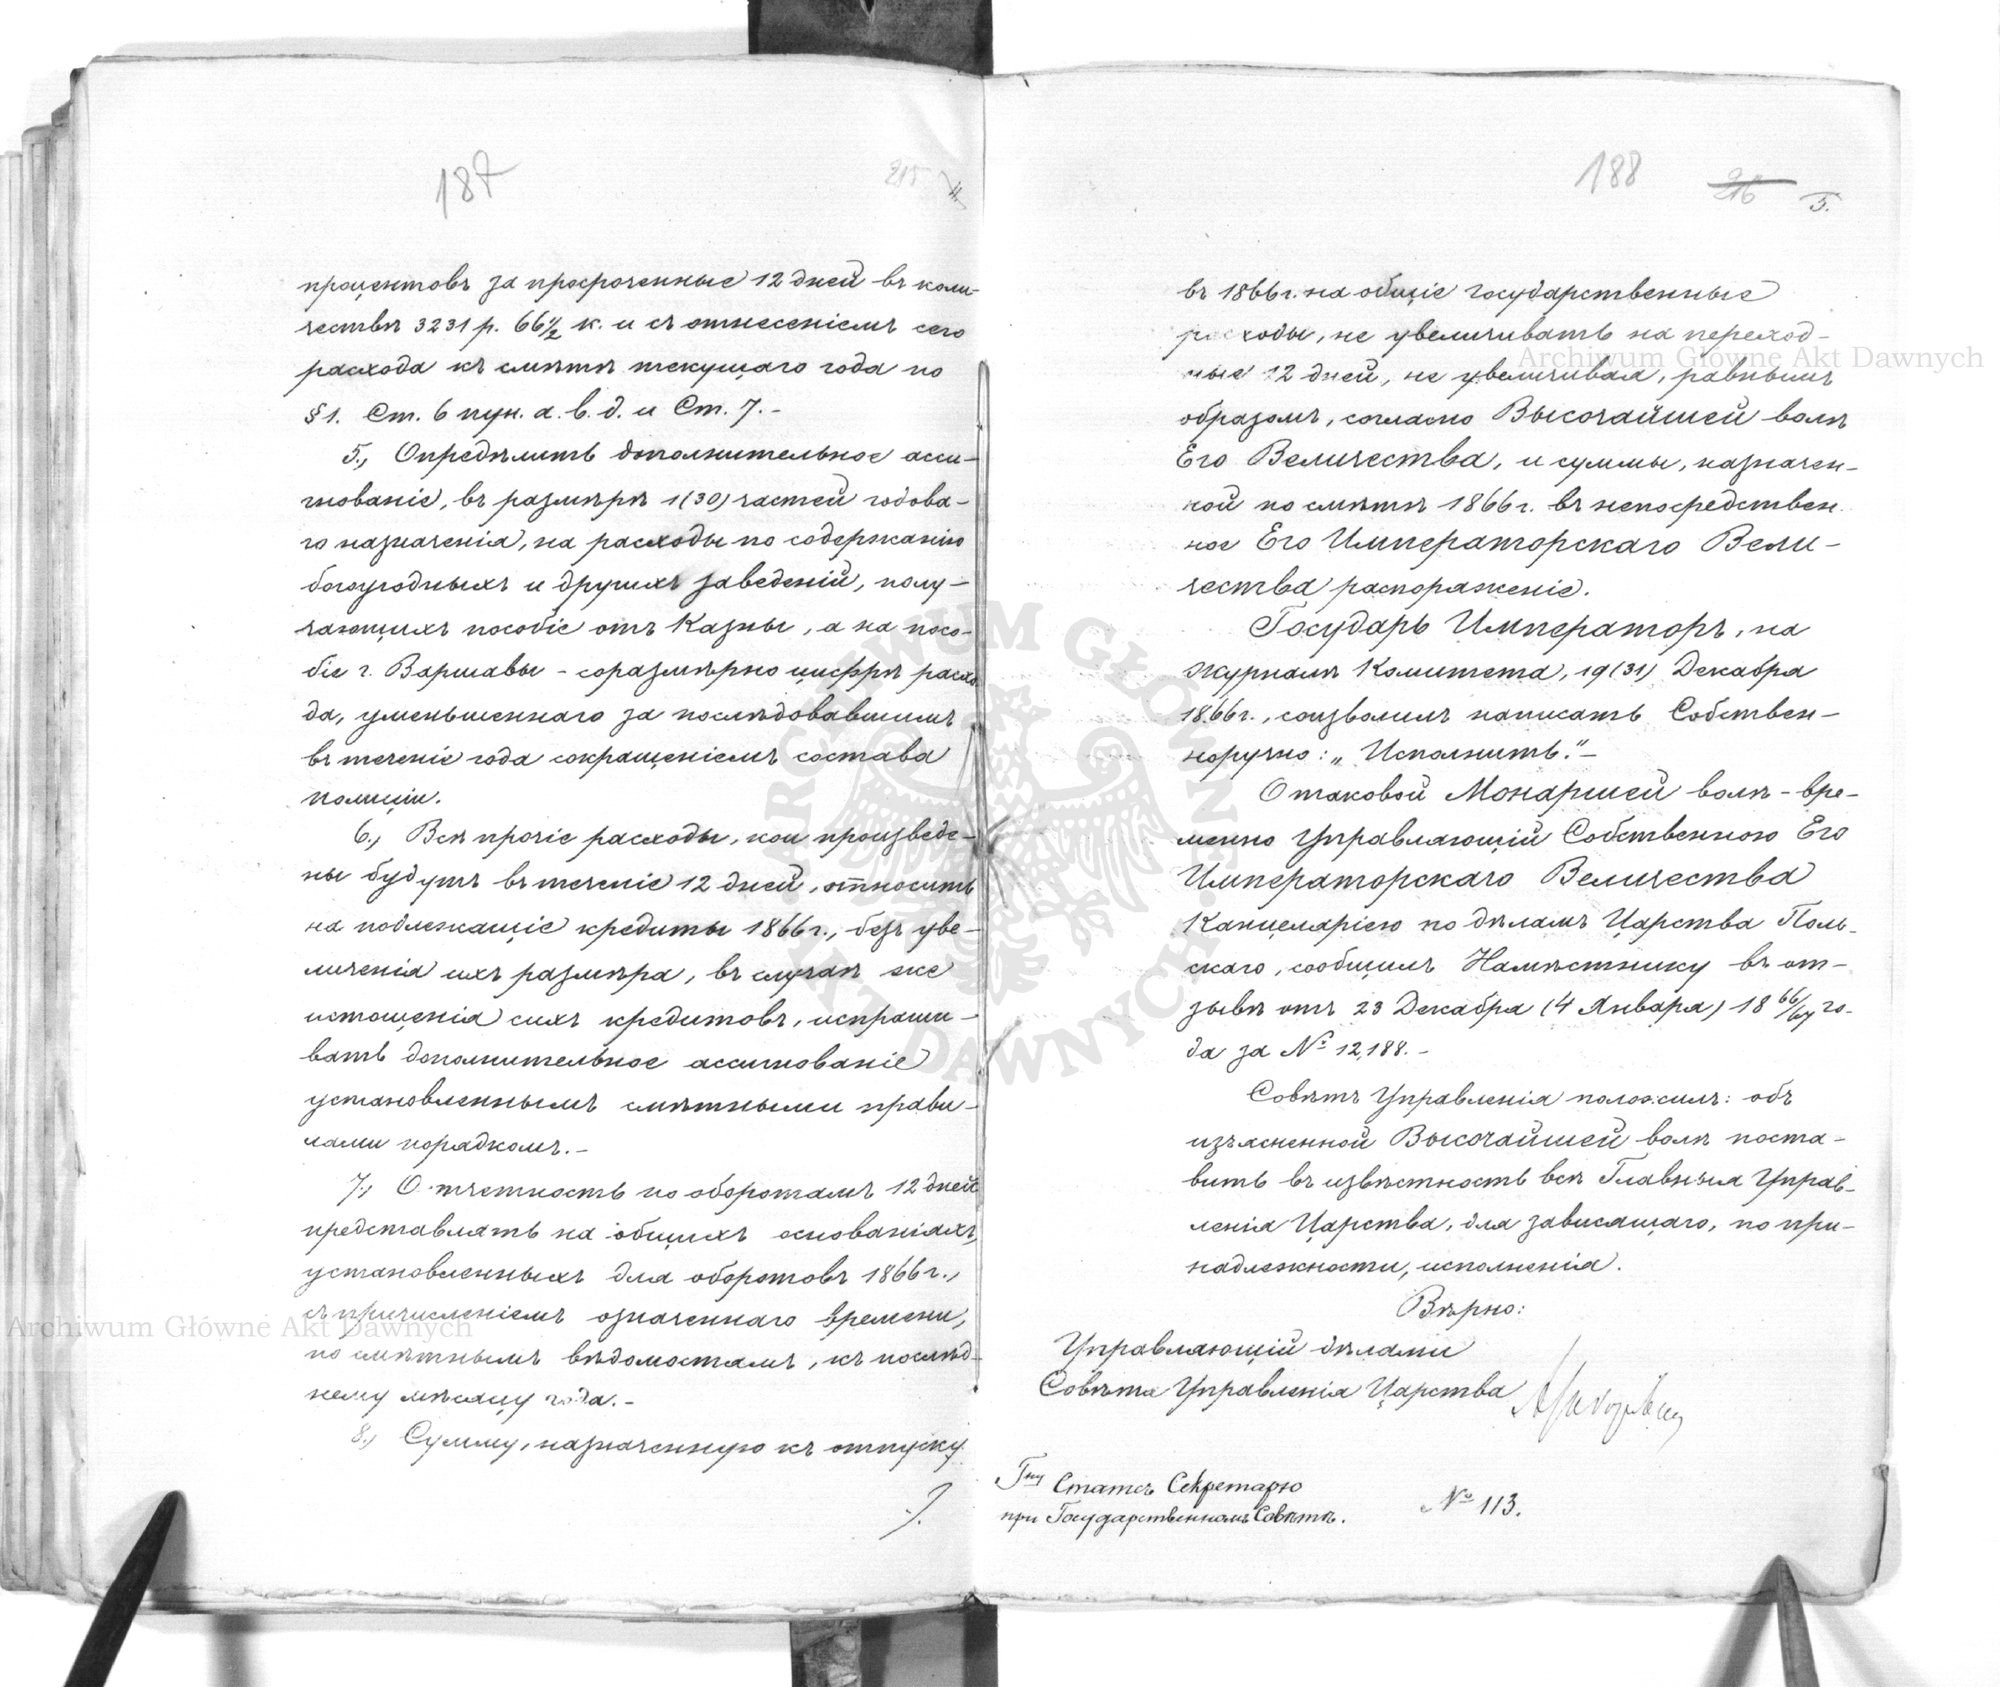 187
215
4
процентовъ за просроченные 12 дней въ коли-
чествѣ 3231 р. 66½ к. и съ отнесеніемъ сего
расхода къ смѣтѣ текущаго года по
§ 1. Ст. 6 пун. а. в. д. и Ст. 7. –
5., Опредѣлить дополнительное асси-
гнованіе, въ размѣрѣ 1(30) частей годова-
го назначенія, на расходы по содержанію
богоугодныхъ и другихъ заведеній, полу-
чающихъ пособіе отъ Казны, а на посо-
біе г. Варшавы – соразмѣрно цифрѣ расхо-
да, уменьшеннаго за послѣдовавшимъ
въ теченіе года сокращеніемъ состава
полиціи.
6., Всѣ прочіе расходы, кои произведе-
ны будутъ въ теченіе 12 дней, относить
на подлежащіе кредиты 1866 г., безъ уве-
личенія ихъ размѣра, въ случаѣ же
истощенія сихъ кредитовъ, испраши-
вать дополнительное ассигнованіе
установленнымъ смѣтными прави-
лами порядкомъ. –
7., Отчетность по оборотамъ 12 дней
представлять на общихъ основаніяхъ,
установленныхъ для оборотовъ 1866 г.,
съ причисленіемъ означеннаго времени,
по смѣтнымъ вѣдомостямъ, къ послѣд-
нему мѣсяцу года. –
8., Сумму, назначенную къ отпуску
188
216
5.
въ 1866 г. на общіе государственные
расходы, не увеличивать на переход-
ные 12 дней, не увеличивая, равнымъ
образомъ, согласно Высочайшей волѣ
Его Величества, и суммы, назначен-
ной по смѣтѣ 1866 г. въ непосредствен-
ное Его Императорскаго Вели-
чества распоряженіе.
Государь Императоръ, на
журналѣ Комитета, 19 (31) Декабря
1866 г., соизволилъ написать Собствен-
норучно: „Исполнить." –
О таковой Монаршей волѣ – вре-
менно Управляющій Собственною Его
Императорскаго Величества
Канцеляріею по дѣламъ Царства Поль-
скаго, сообщилъ Намѣстнику въ от-
зывѣ отъ 23 Декабря (4 Января) 18 66/67 го-
да за № 12,188. –
Совѣтъ Управленія положилъ: объ
изъясненной Высочайшей волѣ поста-
вить въ извѣстность всѣ Главныя Управ-
ленія Царства, для зависящаго, по при-
надлежности, исполненія.
Вѣрно:
Управляющій дѣлами
Совѣта Управленія Царства
Гну Статсъ Секретарю
при Государственномъ Совѣтѣ.
№ 113.
Archiwum Główne Akt Dawnych
Archiwum Główne Akt Dawnych
ARCHIWUM GŁÓWNE AKT DAWNYCH